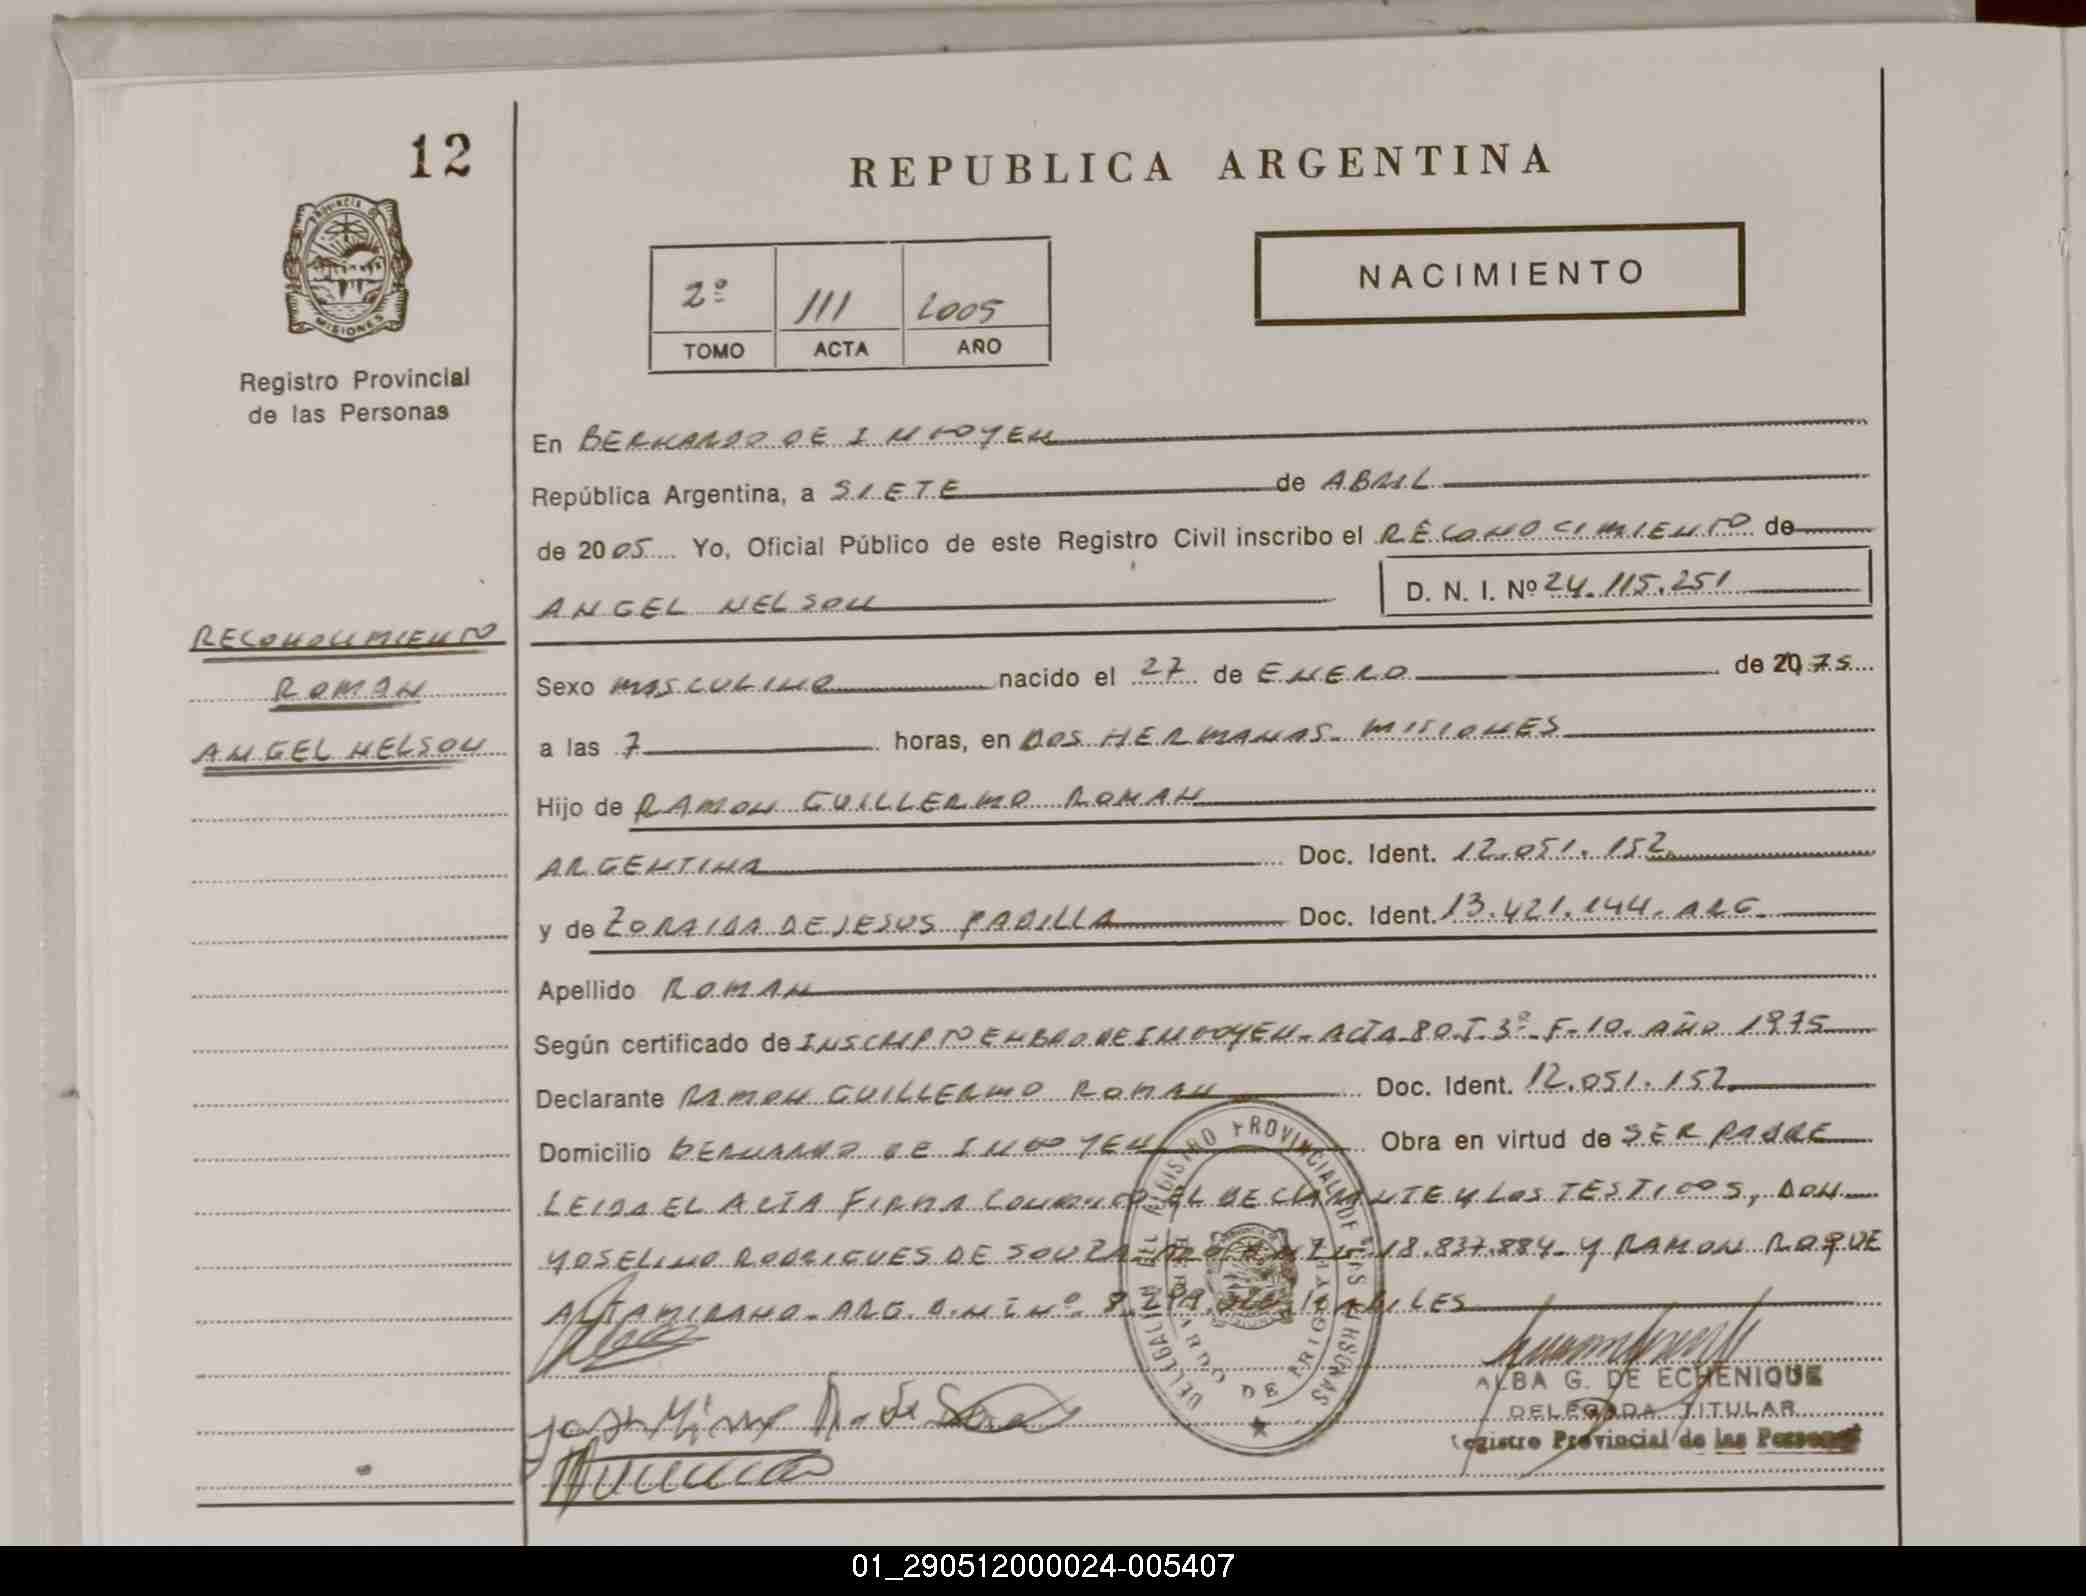 12
PROVINCIA DE
MISIONES
Registro Provincial
de las Personas
REPUBLICA ARGENTINA
2º 111 2005
TOMO ACTA AÑO
NACIMIENTO
En BERNARDO DE IRIGOYEN
República Argentina, a SIETE de ABRIL
de 2005 Yo, Oficial Público de este Registro Civil inscribo el RECONOCIMIENTO de
ANGEL NELSON D. N. I. Nº 24.115.251
RECONOCIMIENTO
ROMAN
ANGEL NELSON
Sexo MASCULINO nacido el 27 de ENERO de 20 75
a las 7 horas, en DOS HERMANAS. MISIONES
Hijo de RAMON GUILLERMO ROMAN
ARGENTINA Doc. Ident. 12.051.152
y de ZORAIDA DE JESUS PADILLA Doc. Ident. 13.421.144. ARG.
Apellido ROMAN
Según certificado de INSCRIPTO EN BDO DE IRIGOYEN. ACTA 80. T. 3º F-10. AÑO 1975
Declarante RAMON GUILLERMO ROMAN Doc. Ident. 12.051.152
Domicilio BERNARDO DE IRIGOYEN Obra en virtud de SER PADRE
LEIDA EL ACTA FIRMA CONMIGO EL DECLARANTE Y LOS TESTIGOS, DON
YOSELINO RODRIGUES DE SOUZA 18.837.884. Y RAMON ROQUE
ALTAMIRANO. ARG. D.N.I Nº HABILES
DELEGACION DEL REGISTRO PROVINCIAL DE LAS PERSONAS
BERNARDO DE IRIGOYEN
ALBA G. DE ECHENIQUE
DELEGADA TITULAR
Registro Provincial de las Personas
01_290512000024-005407